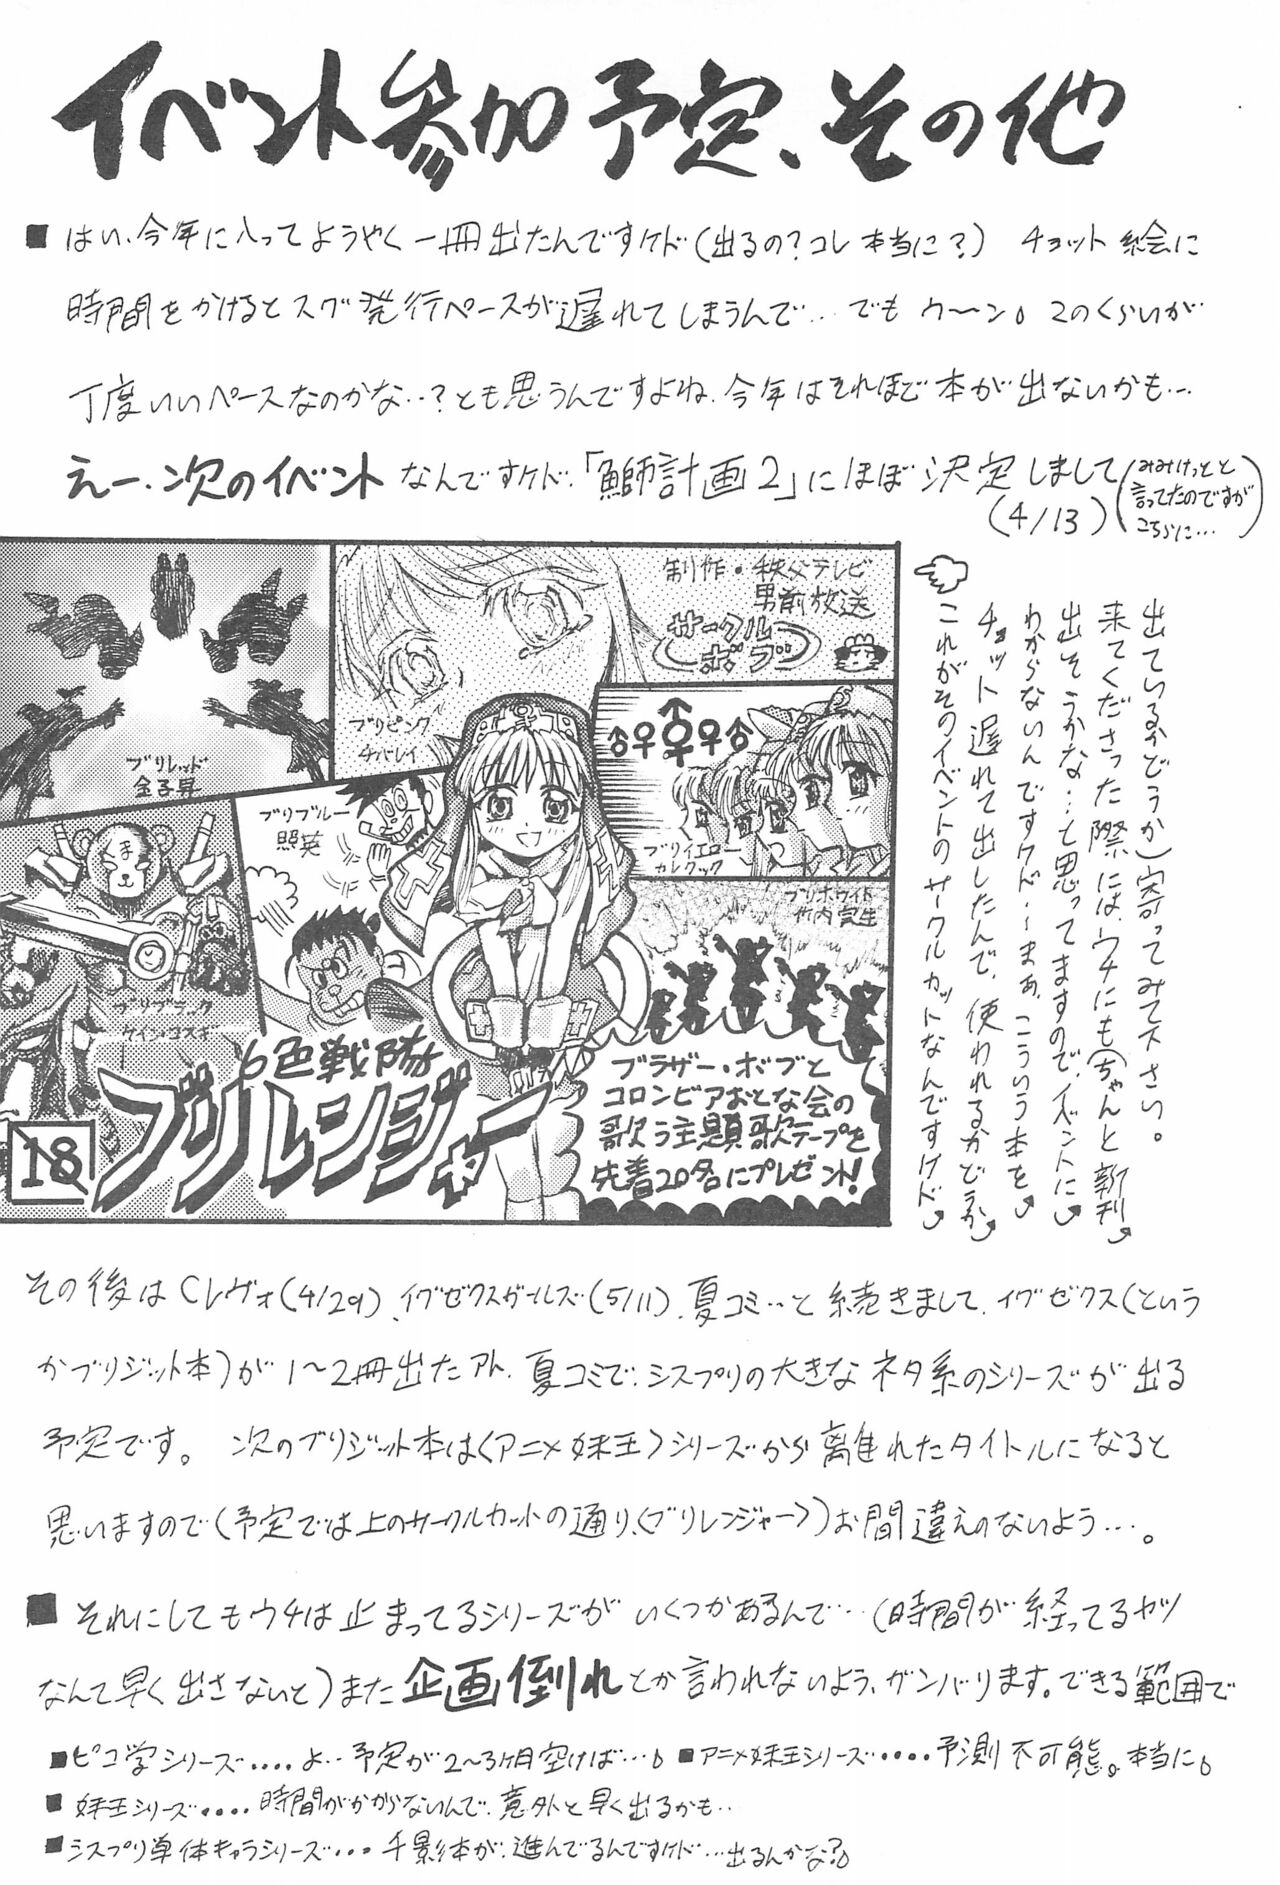 イベント参加予定、その他
■はい、今年に入ってようやく一冊出たんですケド(出るの?コレ本当に?) チョット絵に
時間をかけるとスグ発行ペースが遅れてしまうんで…でもウ〜ン。このくらいが
丁度いいペースなのかな‥?とも思うんですよね、今年はそれほど本が出ないかも…
えー、次のイベントなんですケド、「鰤計画2」にほぼ決定しまして
(4/13)
(みみけっとと
言ってたのですが
こちらに…)
これがそのイベントのサークルカットなんですけド
チョット遅れて出したんで、使われるかどうか
わからないんですケド、〜まぁ、こういう本を
出そうかな…と思ってますので、イベントに
来てくださった際には、ウチにも(ちゃんと新刊
出ているかどうか)寄ってみて下さい。
ブリレッド
金子昇
ブリピンク
チバレイ
制作・秩父テレビ
男前放送
サークル
ボブ
ブリブルー
照英
ブリイエロー
カレクック
ブリホワイト
竹内実生
ブリブラック
ケイン・コスギ
6色戦隊
ブリレンジャー
18
ブラザー・ボブと
コロンビアおとな会の
歌う主題歌テープを
先着20名にプレゼント!
その後はCレヴォ(4/29)、イグゼクスガールズ(5/11)、夏コミ‥と続きまして、イグゼクス(という
かブリジット本)が1〜2冊出たアト、夏コミで、シスプリの大きなネタ系のシリーズが出る
予定です。 次のブリジット本は〈アニメ妹王〉シリーズから離れたタイトルになると
思いますので(予定では上のサークルカットの通り、〈ブリレンジャー〉)お間違えのないよう…。
■それにしてもウチは止まってるシリーズがいくつかあるんで…(時間が経ってるヤツ
なんて早く出さないと)また企画倒れとか言われないよう、ガンバります。できる範囲で
■ピコ学シリーズ‥‥よ‥予定が2〜3ヶ月空けば…。■アニメ妹王シリーズ・・・・予測不可能。本当に。
■妹王シリーズ・・・・時間がかからないんで、意外と早く出るかも‥
■シスプリ単体キャラシリーズ・・・千影本が、進んでるんですケド…出るんかな?。